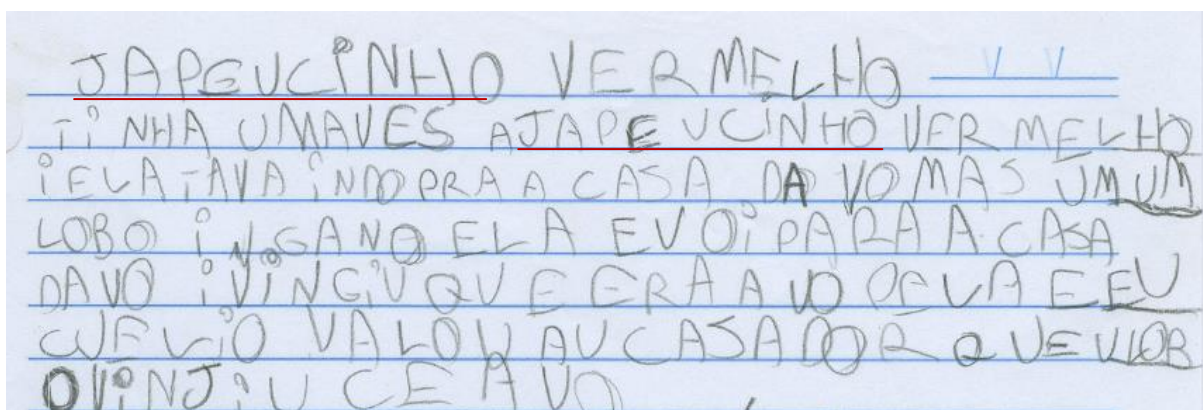 JAPEUCiNHO VERMELHO
TiNHA UMAVES A JAPEUCiNHO VERMELHO
iELA TAVA iNDO PRA A CASA DA VO MAS UM UM
LOBO iNGANO ELA EVOi PARA A CASA
DAVO iViNGiU QUE ERA A VO DELA E EU
CUELiO VALOU AU CASADOR QUEULOB
OViNJiU CE A VO